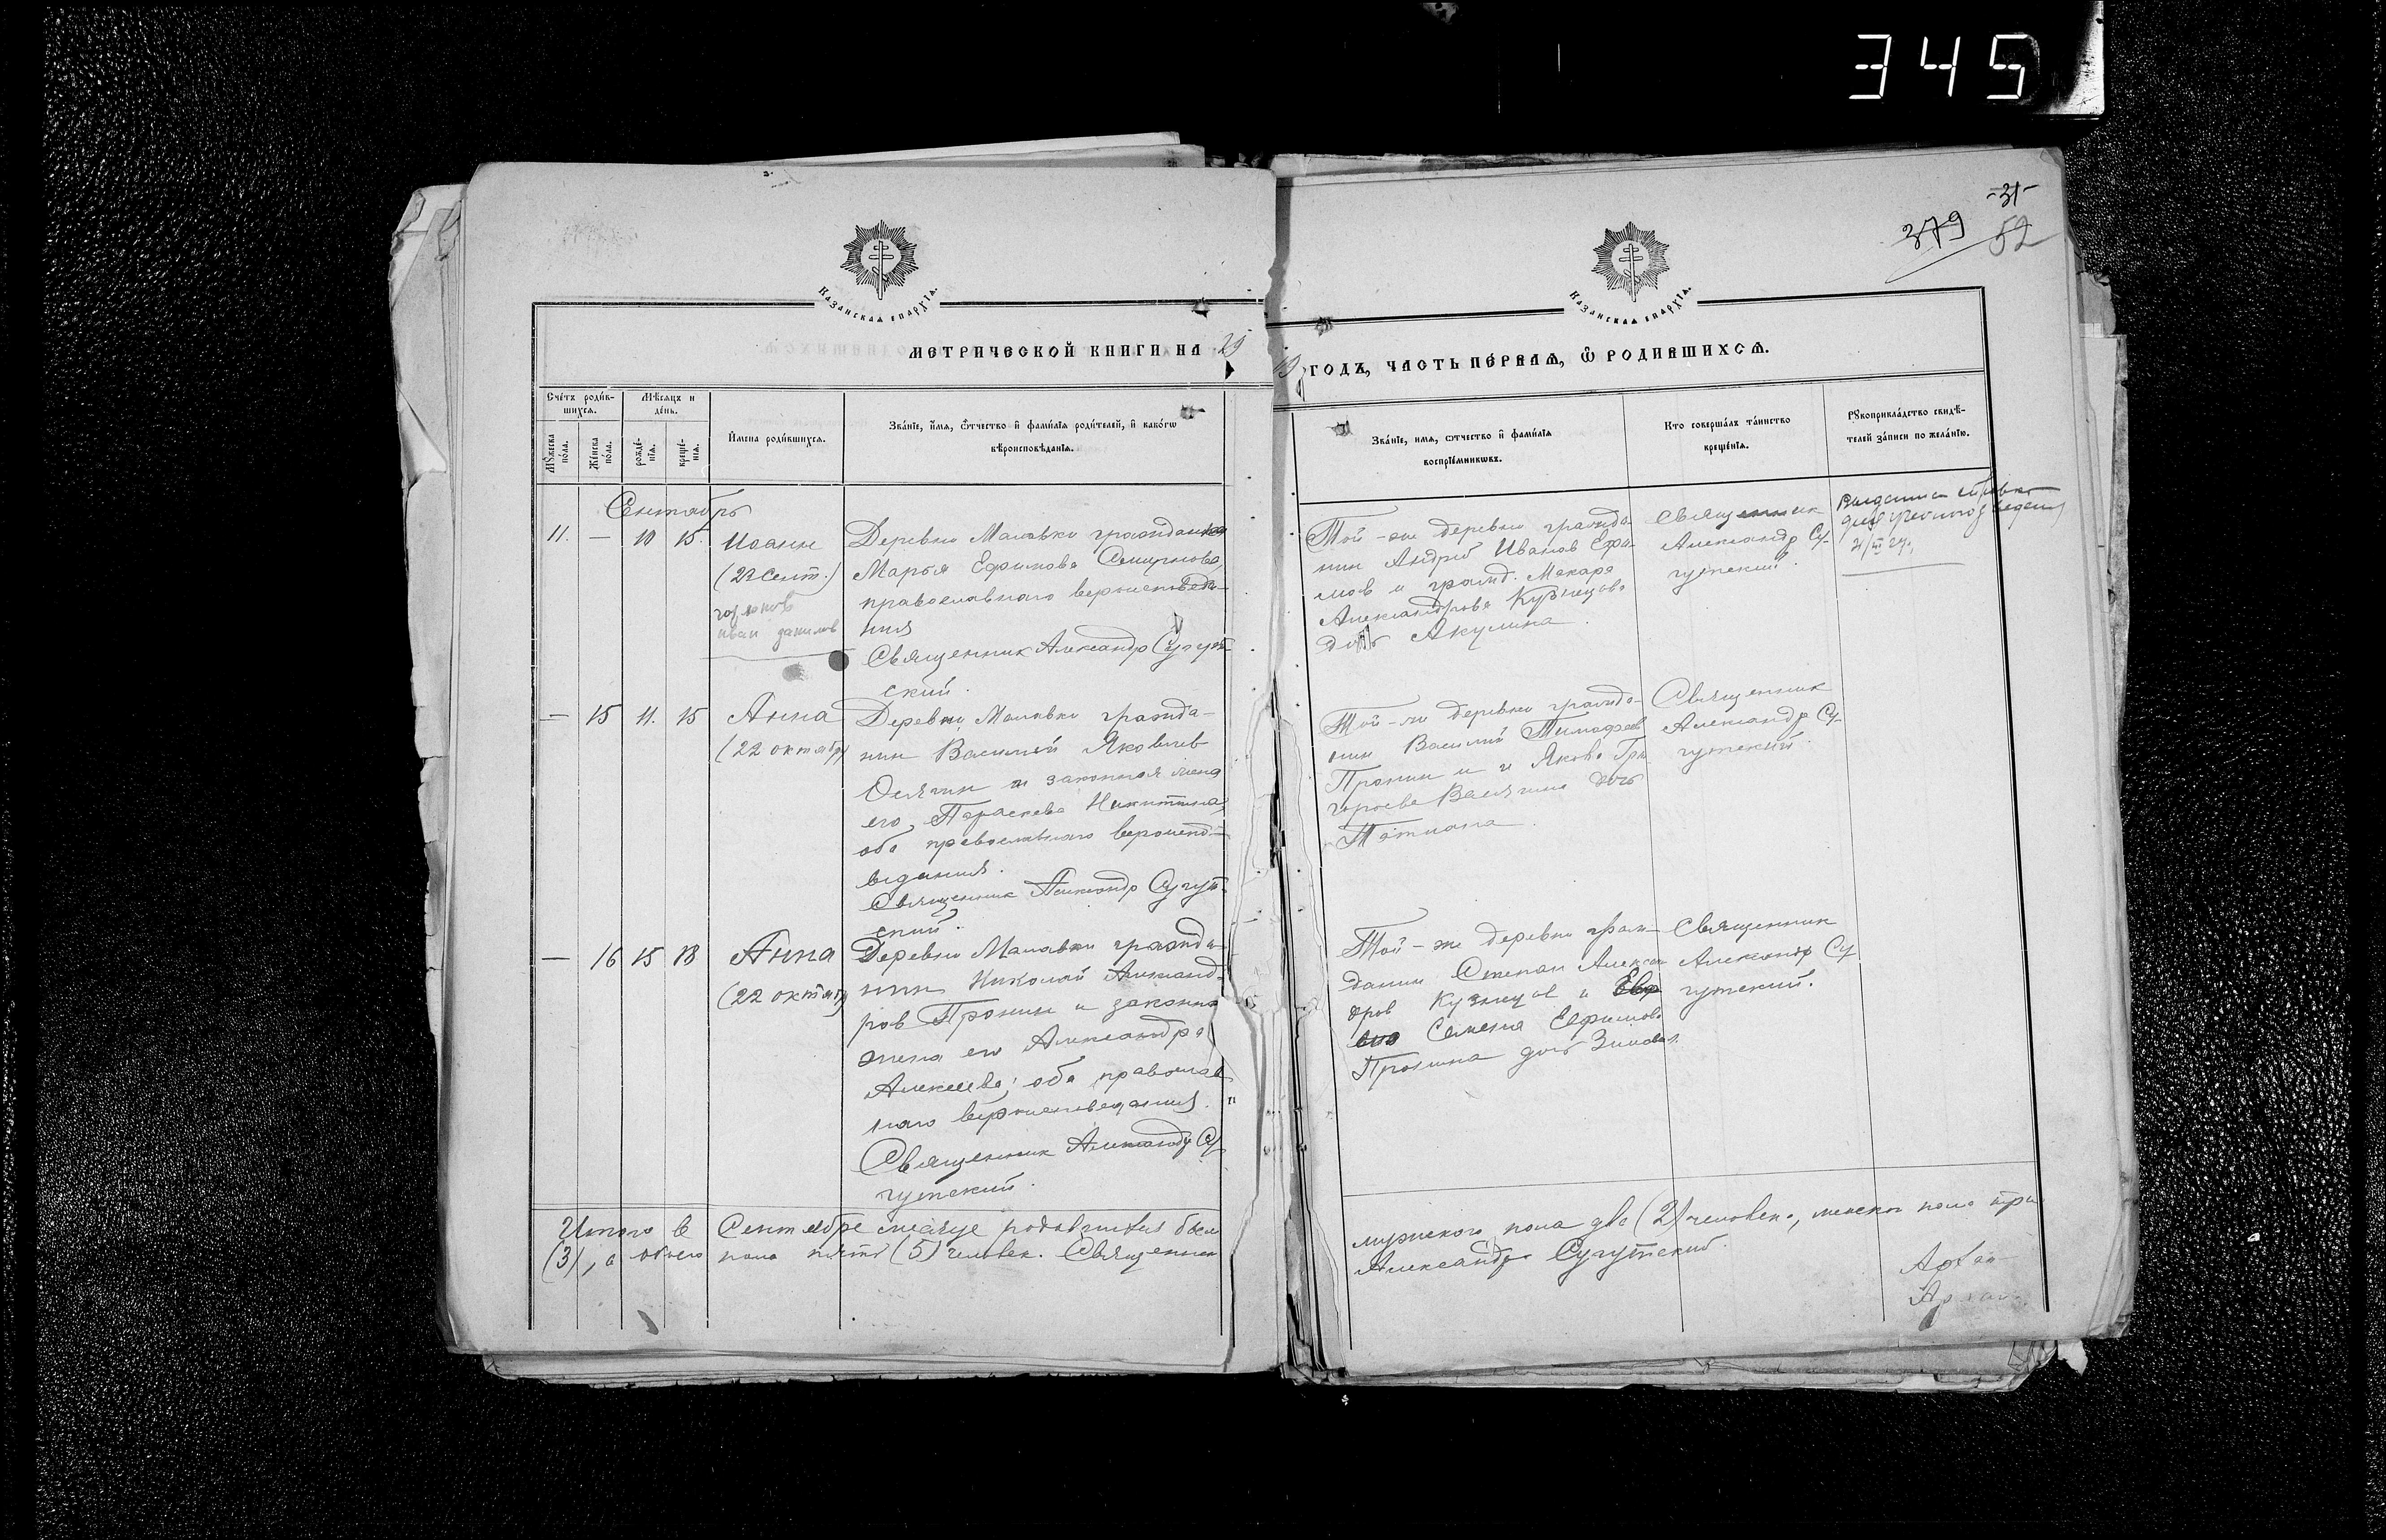 345
-31-
379 52
Казанская епархія.
Казанская епархія.
МЕТРИЧЕСКОЙ КНИГИ НА
ГОДЪ, ЧАСТЬ ПЕ́РВАЯ, Ѡ РОДИВШИХСЯ.
Сче́тъ роди́в-
шихся.
Мѣ́сяцъ и
де́нь.
Мꙋ́жеска по́ла.
Же́нска по́ла.
рожде́-
нїѧ.
креще́-
нїѧ.
И҆мена роди́вшихся.
Зва́нїе, и҆́мя, ѻ҆́тчество и҆ фами́лїя роди́телей, и҆ како́гѡ
вѣроисповѣ́данїя.
Зва́нїе, имя, ѻтчество и҆ фами́лїя
воспрїе́мникѡвъ.
Кто соверша́лъ та́инство
креще́нїя.
Рꙋкоприкла́дство свидѣ́-
телей за́писи по жела́нїю.
Сентябрь
11. — 10 15.
Иоанн
(22 Сент.)
иван данилов
Деревни Малавки гражданка
Марья Ефимова Смирнова,
православного вероисповеда-
ния
Священник Александр Сугут-
ский.
Той-же деревни гражда-
нин Андрей Иванов Ефи-
мов и гражд. Макара
Александрова Кузнецова
дочь Акулина.
Священник
Александр Су-
гутский.
— 15 11. 15
Анна
(22 октября)
Деревни Малавки гражда-
нин Василий Яковлев
и законная жена
его, Параскева Никитина,
оба православного вероиспо-
ведания.
Священник Александр Сугут-
ский.
Той-же деревни гражда-
нин Василий Тимофеев
Пронин и Якова Гри-
горьева дочь
Татиана.
Священник
Александр Су-
гутский.
— 16 15 18
Анна
(22 октяб)
Деревни Малавки гражда-
нин Николай Александ-
ров Пронин и законная
жена его Александра
Алексеева; оба православ-
ного вероисповедания.
Священник Александр Су-
гутский.
Той-же деревни граж-
данин Степан Алексан-
дров Кузнецов и
Семена Ефимова
Пронина дочь
Священник
Александр Су-
гутский.
Итого в Сентябре месяце родившихся было
мужского пола два (2) человека, женского пола три
(3), а обоего пола пять (5) человек. Священник
Александр Сугутский.